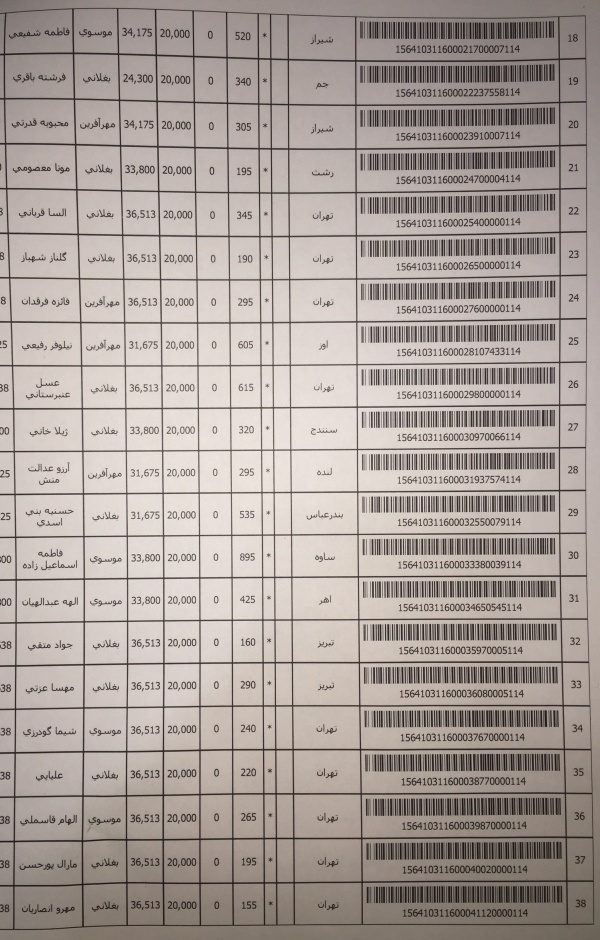 18 156410311600021700007114 شیراز * 520 0 20,000 34,175 موسوي فاطمه شفیعي
19 156410311600022237558114 جم * 340 0 20,000 24,300 بغلاني فرشته باقري
20 156410311600023910007114 شیراز * 305 0 20,000 34,175 مهرآفرین محبوبه قدرتي
21 156410311600024700004114 رشت * 195 0 20,000 33,800 بغلاني مونا معصومي
22 156410311600025400000114 تهران * 345 0 20,000 36,513 بغلاني السا قرباني
23 156410311600026500000114 تهران * 190 0 20,000 36,513 بغلاني گلناز شهباز 8
24 156410311600027600000114 تهران * 295 0 20,000 36,513 مهرآفرین فائزه فرقدان 8
25 156410311600028107433114 اوز * 605 0 20,000 31,675 مهرآفرین نیلوفر رفیعي 25
26 156410311600029800000114 تهران * 615 0 20,000 36,513 بغلاني عسل عنبرستاني 38
27 156410311600030970066114 سنندج * 320 0 20,000 33,800 بغلاني ژیلا خاني 00
28 156410311600031937574114 لنده * 295 0 20,000 31,675 مهرآفرین آرزو عدالت منش 25
29 156410311600032550079114 بندرعباس * 535 0 20,000 31,675 بغلاني حسنیه بني اسدي 25
30 156410311600033380039114 ساوه * 895 0 20,000 33,800 موسوي فاطمه اسماعیل زاده 00
31 156410311600034650545114 اهر * 425 0 20,000 33,800 موسوي الهه عبدالهیان 00
32 156410311600035970005114 تبریز * 160 0 20,000 36,513 بغلاني جواد متقي 38
33 156410311600036080005114 تبریز * 290 0 20,000 36,513 بغلاني مهسا عزتي 38
34 156410311600037670000114 تهران * 240 0 20,000 36,513 موسوي شیما گودرزي 38
35 156410311600038770000114 تهران * 220 0 20,000 36,513 بغلاني علیایي 38
36 156410311600039870000114 تهران * 265 0 20,000 36,513 موسوي الهام قاسملي 38
37 156410311600040020000114 تهران * 195 0 20,000 36,513 بغلاني مارال پورحسن 38
38 156410311600041120000114 تهران * 155 0 20,000 36,513 بغلاني مهرو انصاریان 38